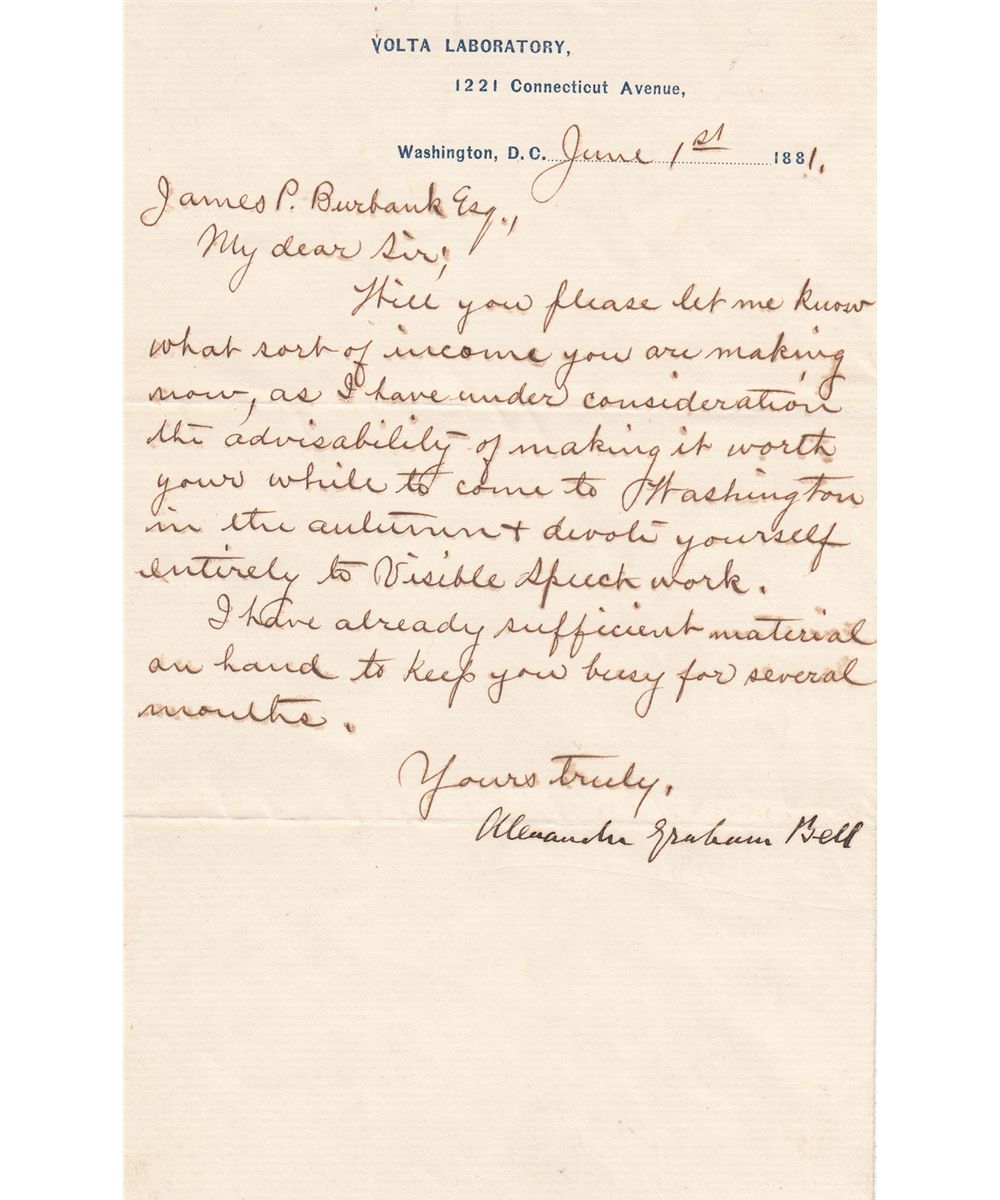 VOLTA LABORATORY,
1221 Connecticut Avenue,
Washington, D.C. June 1st 1881.
James P. Burbank Esq.,
My dear Sir;
Will you please let me know
what sort of income you are making
now, as I have under consideration
the advisability of making it worth
your while to come to Washington
in the autumn + devote yourself
entirely to Visible Speech work.
I have already sufficient material
on hand to keep you busy for several
months.
Yours truly,
Alexander Graham Bell